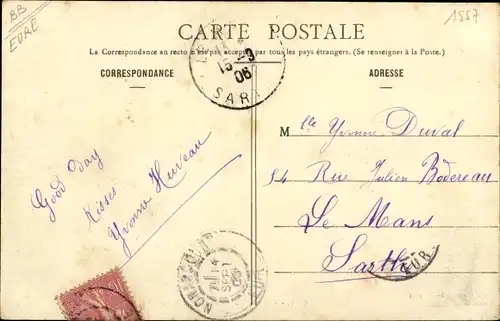 BB
EURE
1557
CARTE POSTALE
La Correspondance au recto n'est pas acceptée par tous les pays étrangers. (Se renseigner à la Poste.)
CORRESPONDANCE
ADRESSE
15 -9
06
SAR
Good Day
Kisses
Yvonne Huveau
Mlle Yvonne Duval
54 Rue Julien Bodereau
Le Mans
Sarthe
EUR